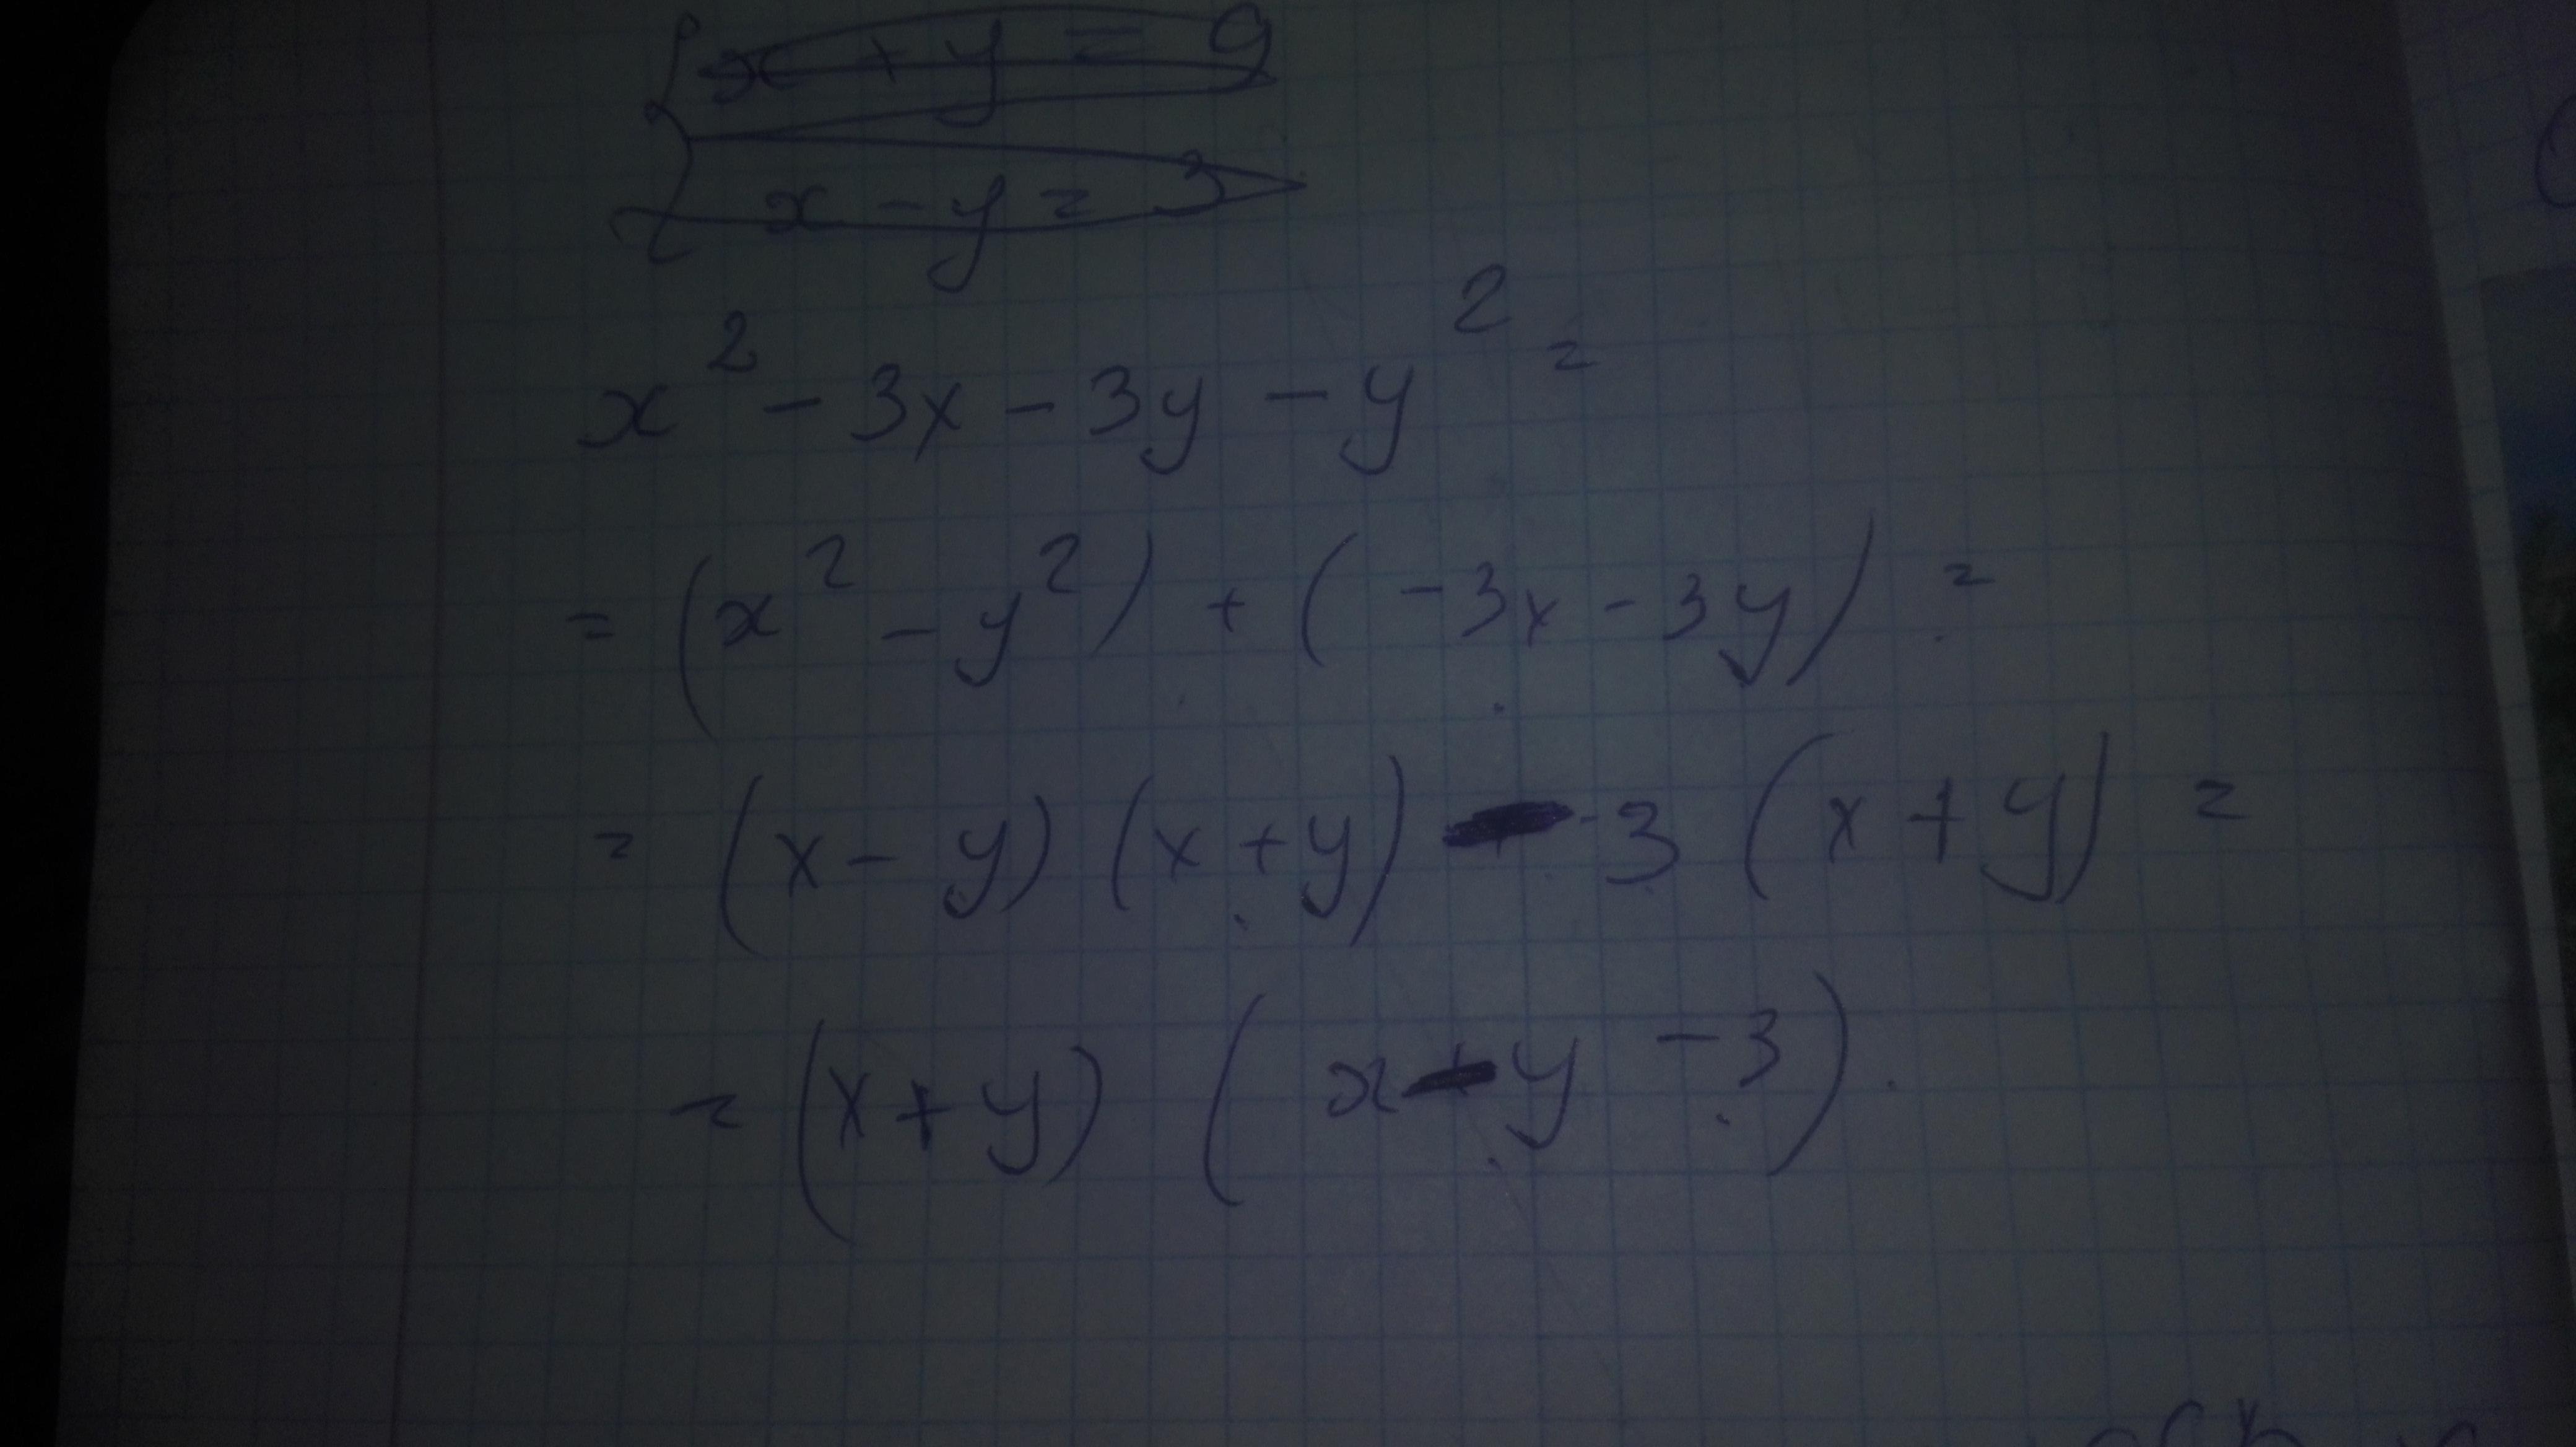 x + y = 9
x - y = 3
x² - 3x - 3y - y² =
= (x² - y²) + (-3x - 3y) =
= (x - y)(x + y) - 3(x + y) =
= (x + y)(x - y - 3).